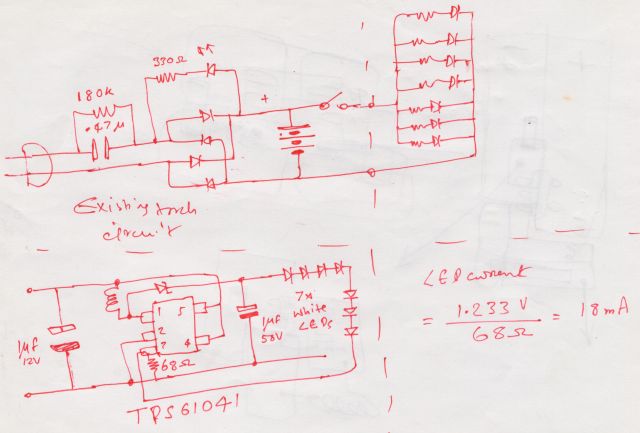 330Ω
180K
.47μ
+
Existing torch
circuit
LED current
= 1.233 V / 68Ω = 18mA
7x
white
LEDs
1μf
12V
1μf
50V
1
5
2
3
4
68Ω
TPS61041